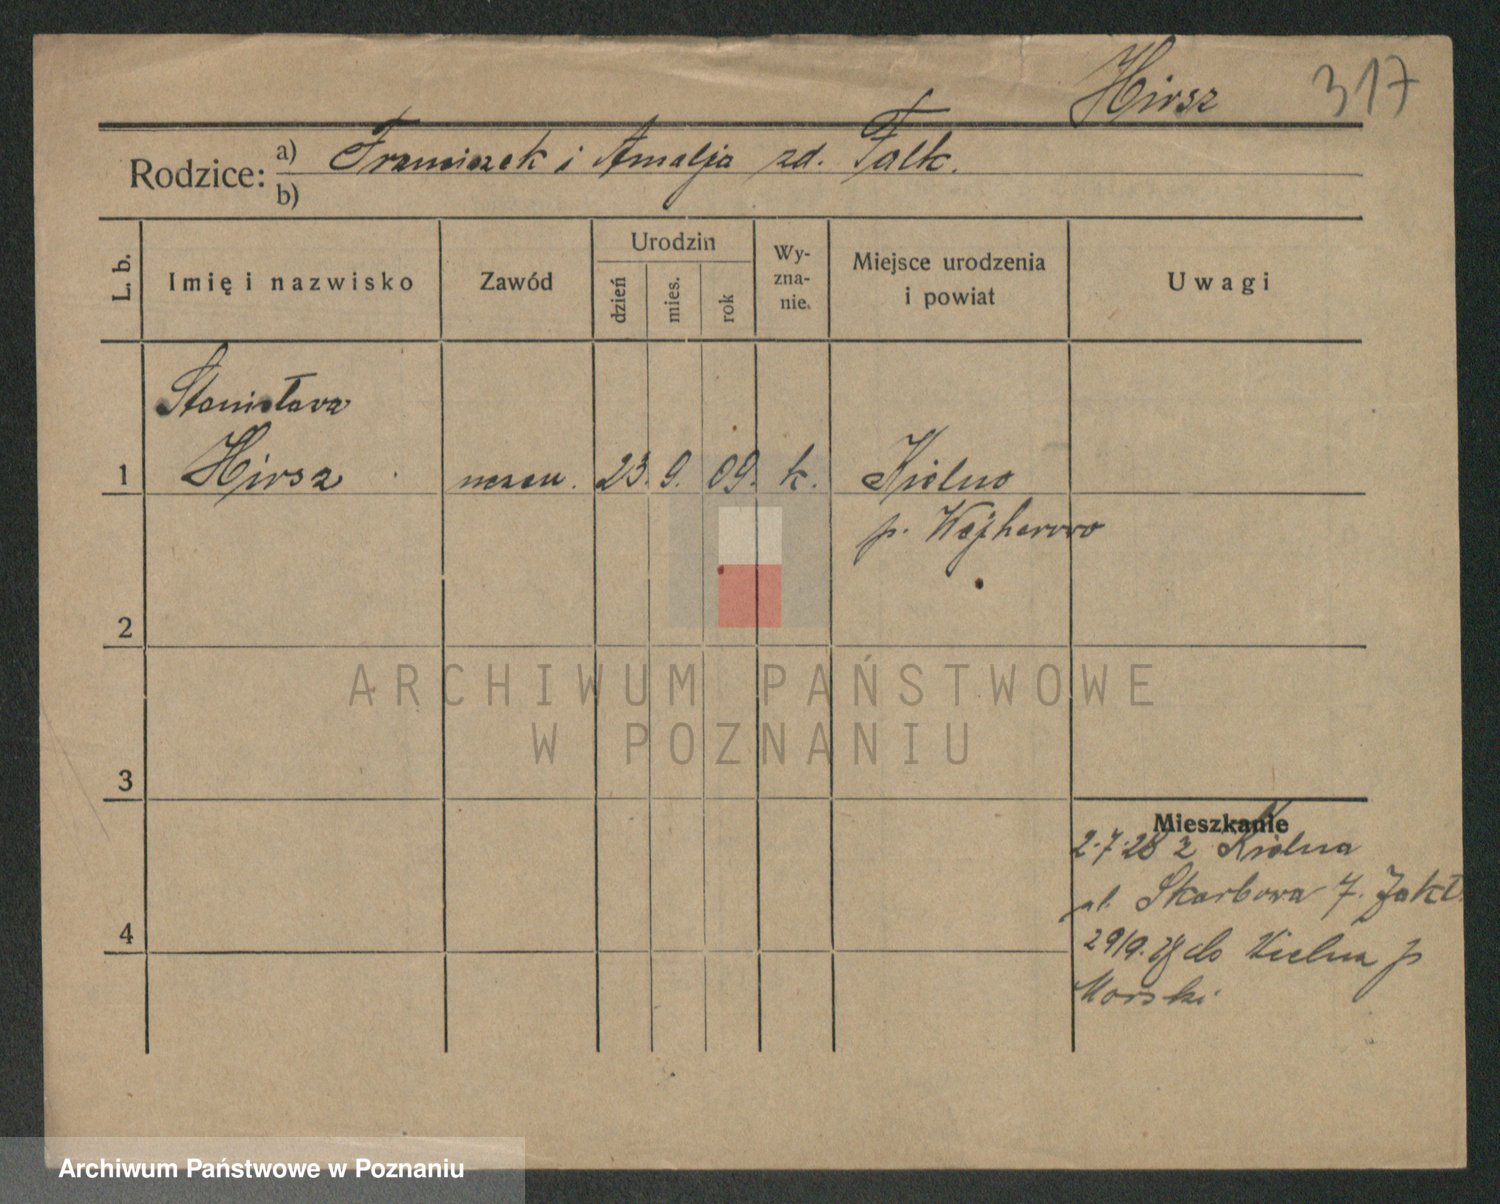 Hirsz 317
Rodzice: a) Franciszek i Amalja zd. Falk.
b)
L. b. Imię i nazwisko Zawód Urodzin dzień mies. rok Wy-zna-nie. Miejsce urodzenia i powiat Uwagi
Stanisława
1 Hirsz uczen. 23. 9. 09. k. Kielno
p. Wejherowo
2
ARCHIWUM PAŃSTWOWE
W POZNANIU
3
Mieszkanie
2.7.28 z Kielna
ul. Skarbowa 7. Zakł.
4
29/9. do Kielna p
Morski.
Archiwum Państwowe w Poznaniu